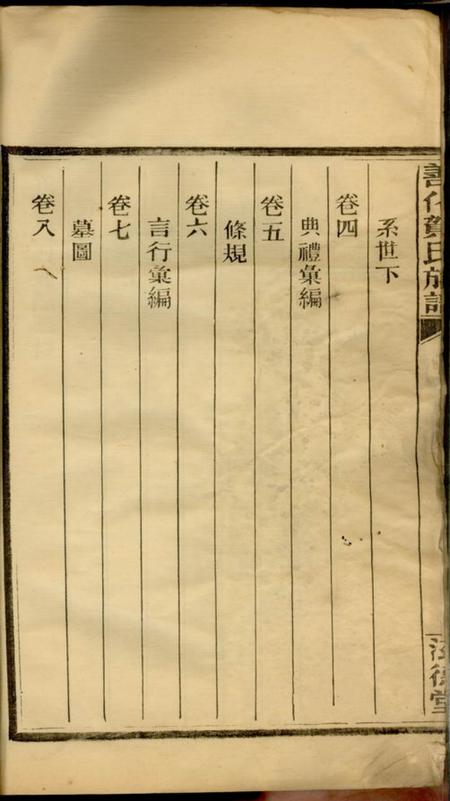 善化賀氏族譜
系世下
卷四
典禮彙編
卷五
條規
卷六
言行彙編
卷七
墓圖
卷八
德堂